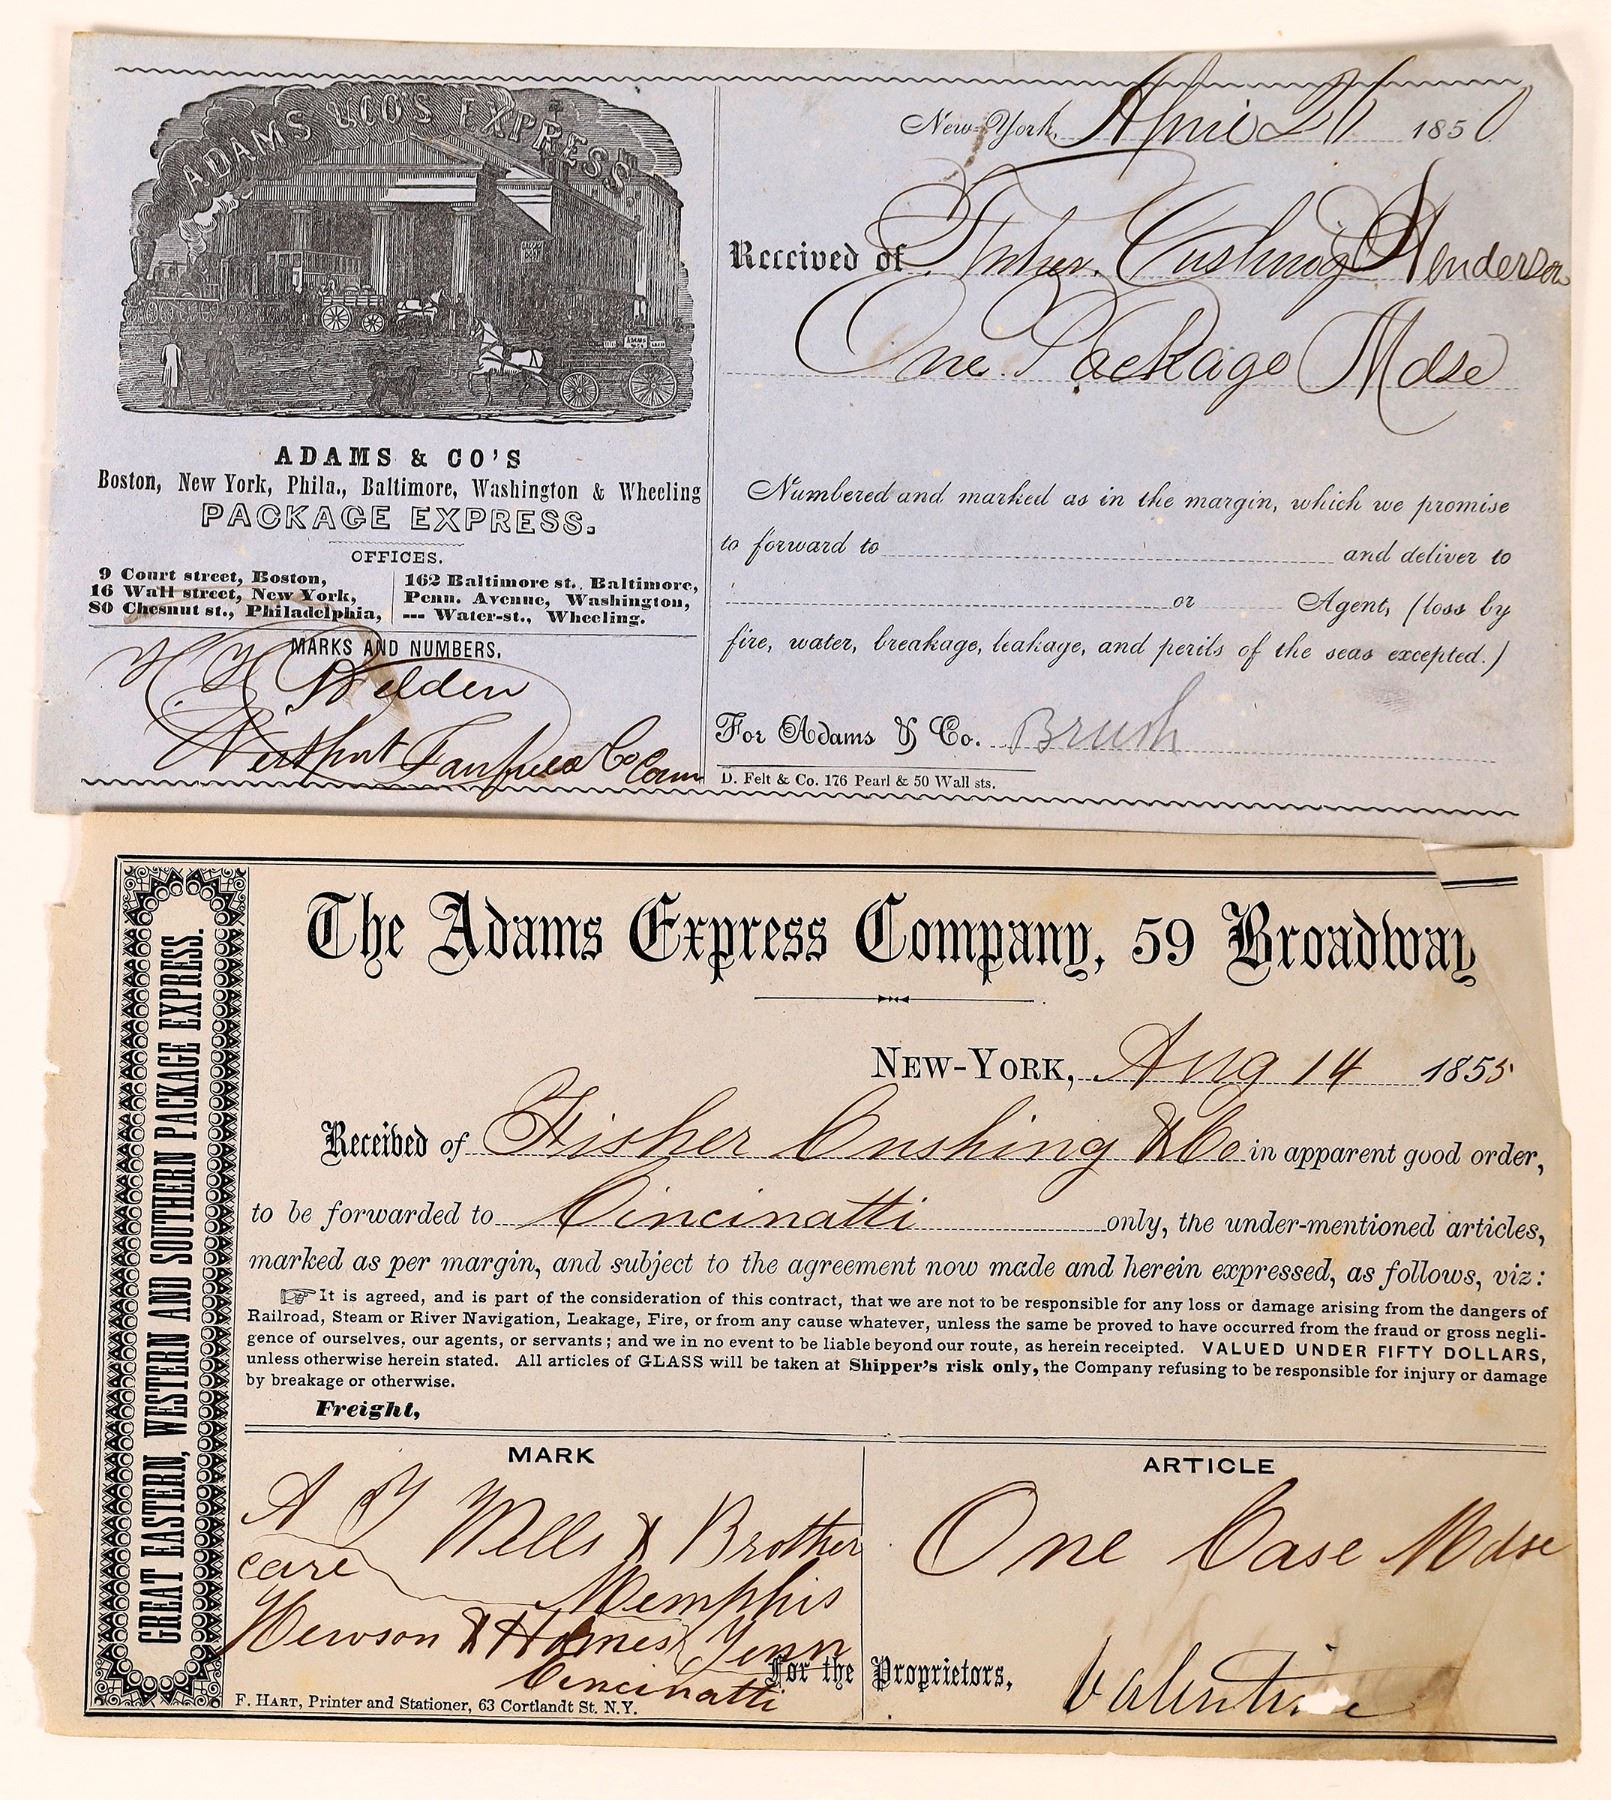 ADAMS & CO'S EXPRESS
ADAMS & CO'S
Boston, New York, Phila., Baltimore, Washington & Wheeling
PACKAGE EXPRESS.
OFFICES.
9 Court street, Boston,
16 Wall street, New York,
80 Chesnut st., Philadelphia,
162 Baltimore st. Baltimore,
Penn. Avenue, Washington,
--- Water-st., Wheeling.
MARKS AND NUMBERS.
Belden
Westport Fairfield Co Conn
New-York, April 26 1850
Received of Fisher Cushing Henderson
One Package Mdse
Numbered and marked as in the margin, which we promise
to forward to and deliver to
or Agent, (loss by
fire, water, breakage, leakage, and perils of the seas excepted.)
For Adams & Co. Brush
D. Felt & Co. 176 Pearl & 50 Wall sts.
GREAT EASTERN, WESTERN AND SOUTHERN PACKAGE EXPRESS.
The Adams Express Company, 59 Broadway
NEW-YORK, Aug 14 1855
Received of Fisher Cushing & Co in apparent good order,
to be forwarded to Cincinatti only, the under-mentioned articles,
marked as per margin, and subject to the agreement now made and herein expressed, as follows, viz:
☞ It is agreed, and is part of the consideration of this contract, that we are not to be responsible for any loss or damage arising from the dangers of
Railroad, Steam or River Navigation, Leakage, Fire, or from any cause whatever, unless the same be proved to have occurred from the fraud or gross negli-
gence of ourselves, our agents, or servants; and we in no event to be liable beyond our route, as herein receipted. VALUED UNDER FIFTY DOLLARS,
unless otherwise herein stated. All articles of GLASS will be taken at Shipper's risk only, the Company refusing to be responsible for injury or damage
by breakage or otherwise.
Freight,
MARK
A Y Wells & Brother
care Memphis
Hewson & Holmes Tenn
Cincinatti
ARTICLE
One Case Mdse
For the Proprietors, Valentine
F. HART, Printer and Stationer, 63 Cortlandt St. N.Y.